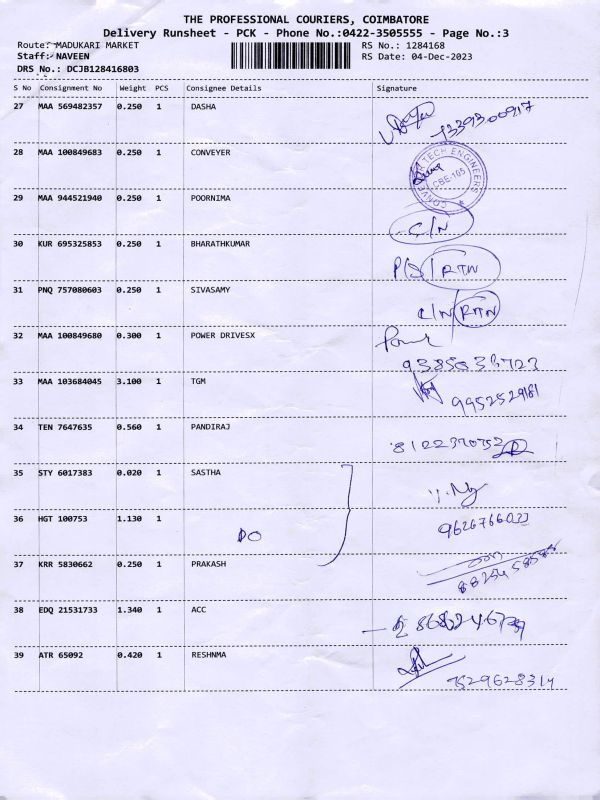 THE PROFESSIONAL COURIERS, COIMBATORE
Delivery Runsheet - PCK - Phone No.:0422-3505555 - Page No.:3
Route: MADUKARI MARKET RS No.: 1284168
Staff: NAVEEN RS Date: 04-Dec-2023
DRS No.: DCJB128416803
S No Consignment No Weight PCS Consignee Details Signature
27 MAA 569482357 0.250 1 DASHA
28 MAA 100849683 0.250 1 CONVEYER
CONVEYER TECH ENGINEERS
CBE-105
29 MAA 944521940 0.250 1 POORNIMA C/N
30 KUR 695325853 0.250 1 BHARATHKUMAR P/S/RTN
31 PNQ 757080603 0.250 1 SIVASAMY C/N RTN
32 MAA 100849680 0.300 1 POWER DRIVESX Power
33 MAA 103684045 3.100 1 TGM
9952529181
34 TEN 7647635 0.560 1 PANDIRAJ
8122370752
35 STY 6017383 0.020 1 SASTHA
36 HGT 100753 1.130 1 DO
9626766033
37 KRR 5830662 0.250 1 PRAKASH
38 EDQ 21531733 1.340 1 ACC
39 ATR 65092 0.420 1 RESHNMA
7529628314